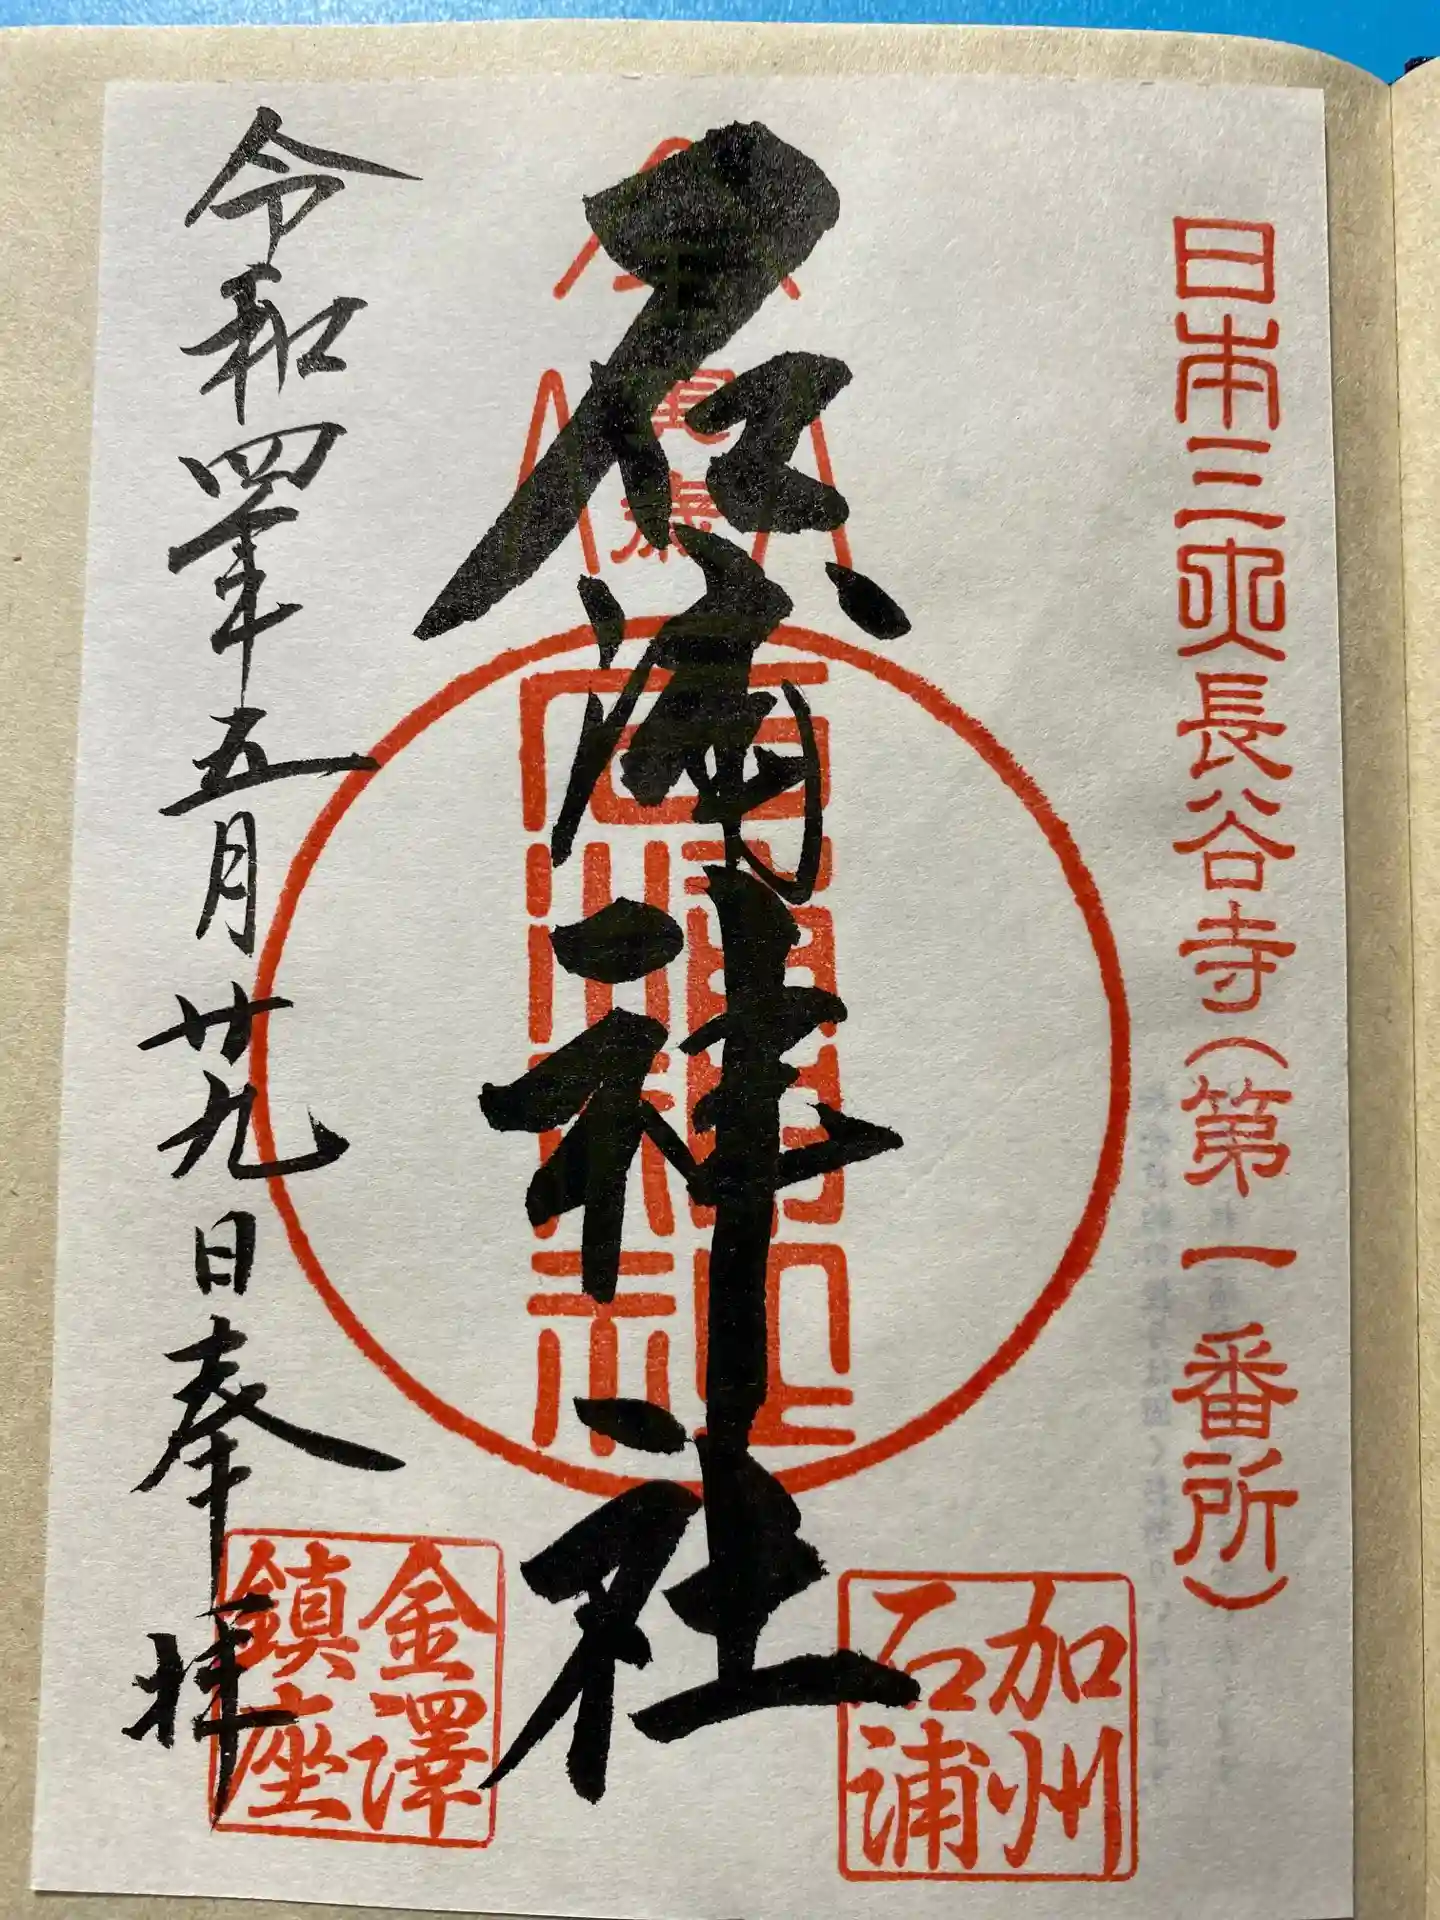 日本三所長谷寺（第一番所）
石浦神社
加州
石浦
金澤
鎮座
令和四年五月廿九日奉拝